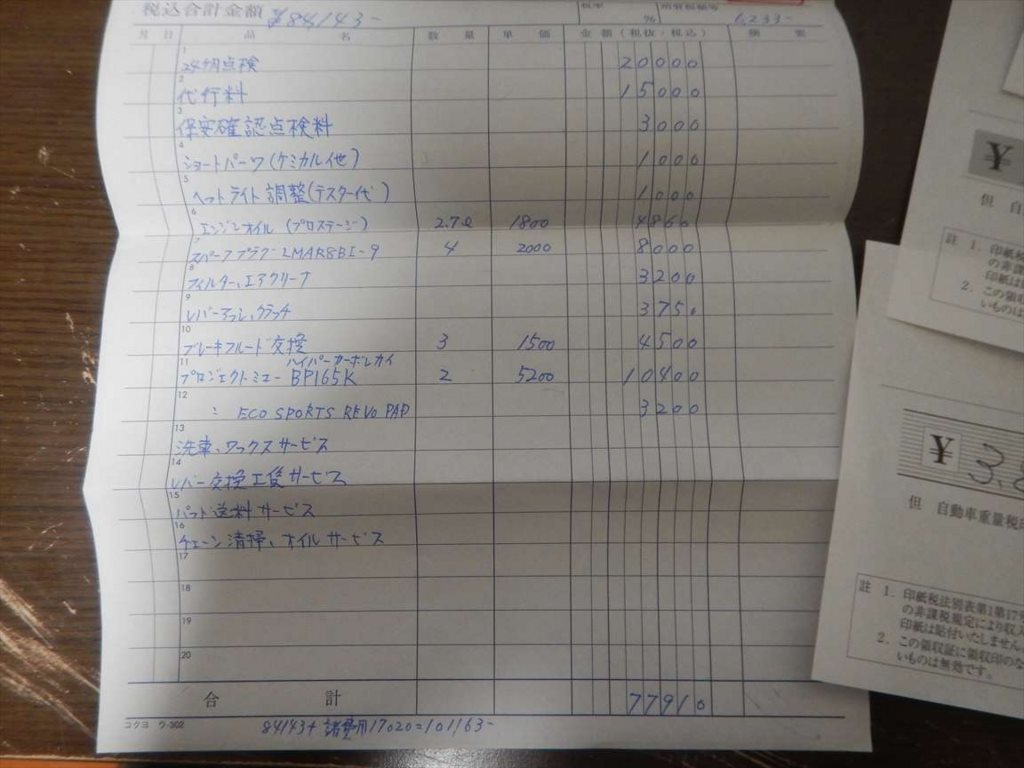 税込合計金額 ¥84143- 税率 % 消費税額等 6,233-
月 日 品 名 数 量 単 価 金 額 (税抜・税込) 摘 要
1 24ヶ月点検 20000
2 代行料 15000
3 保安確認点検料 3000
4 ショートパーツ(ケミカル他) 1000
5 ヘットライト調整(テスター代) 1000
6 エンジンオイル (プロステージ) 2.7ℓ 1800 4860
7 スパークプラグ LMAR8BI-9 4 2000 8000
8 フィルター、エアクリーナ 3200
9 レバーアッシ、クラッチ 3750
10 ブレーキフルード交換 3 1500 4500
11 ハイパーカーボレカイ
プロジェクトミュー BP165K 2 5200 10400
12 : ECO SPORTS REVO PAD 3200
13 洗車、ワックスサービス
14 レバー交換工賃サービス
15 パット送料サービス
16 チェーン清掃、オイルサービス
17
18
19
20
合 計 77910
コクヨ ウ-302
84143+諸費用17020=101163-
¥
但 自
註 1. 印紙税
の非課
印紙は
2. この領
いものは
¥ 3,8
但 自動車重量税
註 1. 印紙税法別表第1第17号
の非課税規定により収入
印紙は貼付いたしません。
2. この領収証に領収印のな
いものは無効です。